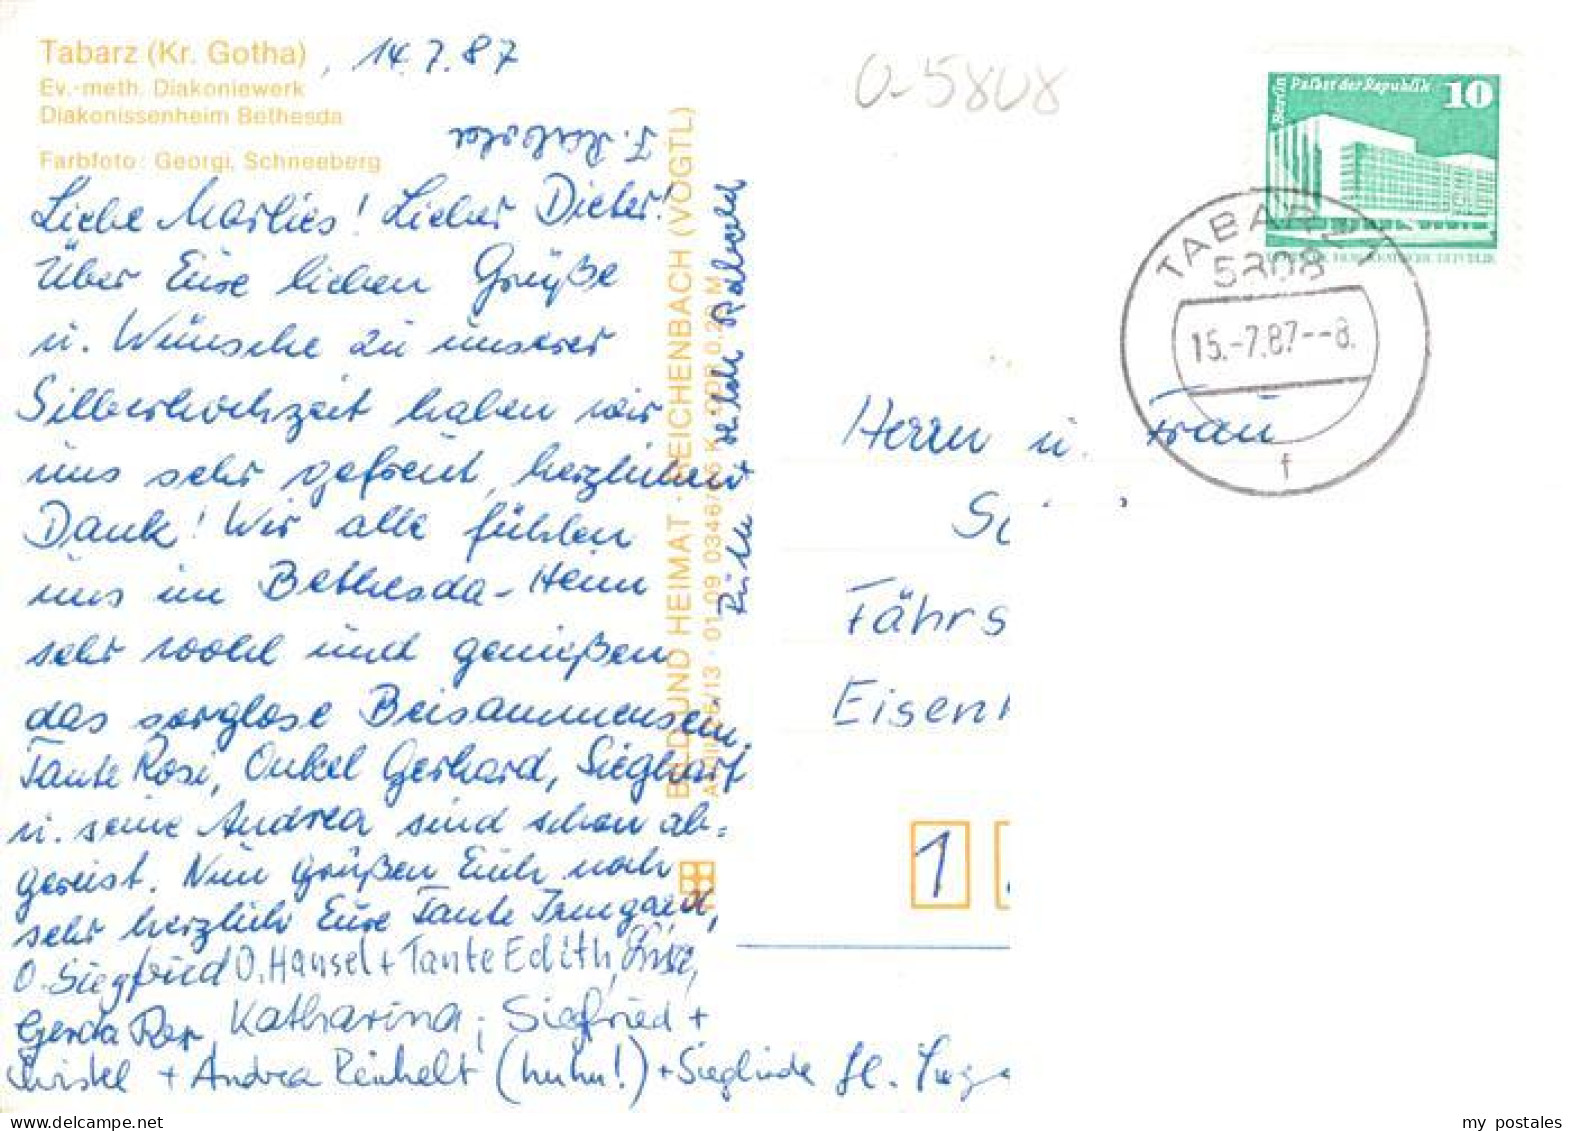 Tabarz (Kr. Gotha), 14.7.87
Ev.-meth. Diakoniewerk
Diakonissenheim Bethesda
Farbfoto: Georgi, Schneeberg
Liebe Marlies! Lieber Dieter!
Über Eure lieben Grüße
u. Wünsche zu unserer
Silberhochzeit haben wir
uns sehr gefreut, herzlichen
Dank! Wir alle fühlen
uns im Bethesda-Heim
sehr wohl und genießen
das sorglose Beisammensein.
Tante Rosi, Onkel Gerhard, Sieghart
u. seine Andrea sind schon ab=
gereist. Nun grüßen Euch noch
sehr herzlich Eure Tante Irmgard,
O. Siegfried O. Hansel + Tante Edith,
Gerda Katharina; Siegfried +
Christel + Andrea Reinhelt (huhu!) + Sieglinde
BILD UND HEIMAT REICHENBACH (VOGTL)
01 09 03
0-5808
Berlin Palast der Republik 10
TABARZ 1
5808
15.-7.87--8.
f
Herrn u. Frau
Fährs
Eisen
1
my postales